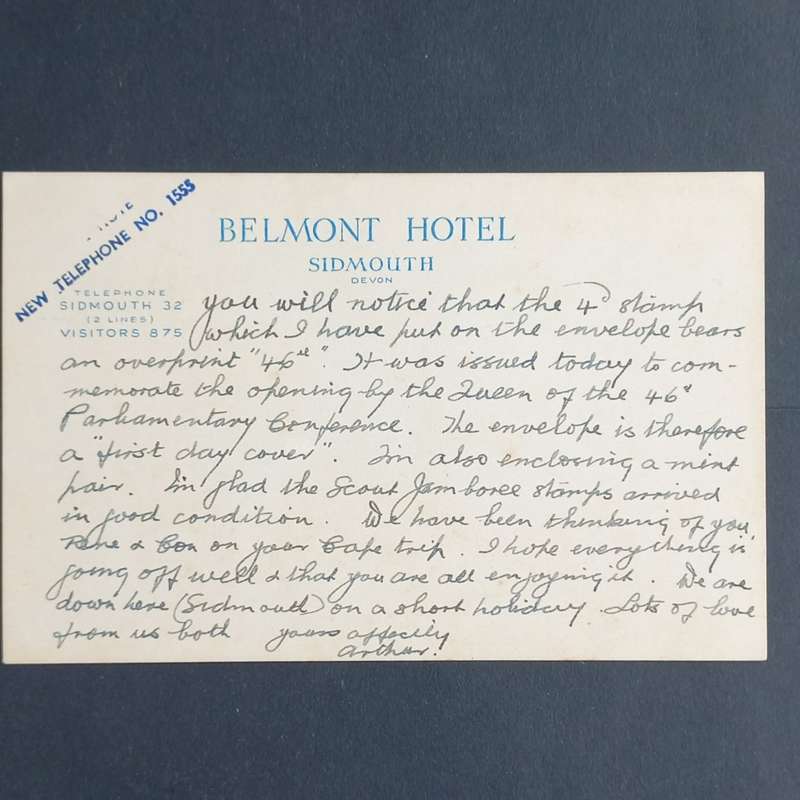 NEW TELEPHONE NO. 1555
BELMONT HOTEL
SIDMOUTH
DEVON
TELEPHONE
SIDMOUTH 32
(2 LINES)
VISITORS 875
you will notice that the 4d stamp
which I have put on the envelope bears
an overprint "46th". It was issued today to com-
memorate the opening by the Queen of the 46th
Parliamentary Conference. The envelope is therefore
a "first day cover". I'm also enclosing a mint
pair. I'm glad the Scout Jamboree stamps arrived
in good condition. We have been thinking of you,
Rene & Con on your Cape trip. I hope everything is
going off well & that you are all enjoying it. We are
down here (Sidmouth) on a short holiday. Lots of love
from us both yours affectly
Arthur.